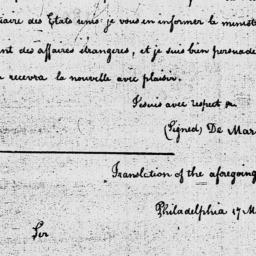 iaire des Etats unis: je vous en informer la ministe
nt des affaires etrangeres, et je suis bien persuade
recevra la nouvelle avec plaisir.
Jesuis avec respect &
(Signed) De Mar
Translation of the aforegoing
Philadelphia 17 M
Sir